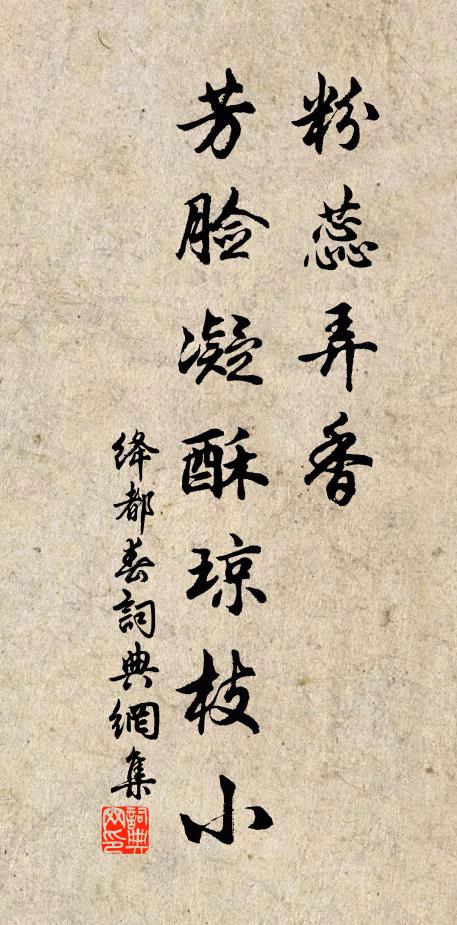 粉蕊弄香
芳脸凝酥琼枝小
绛都春詞典網集
詞典网印